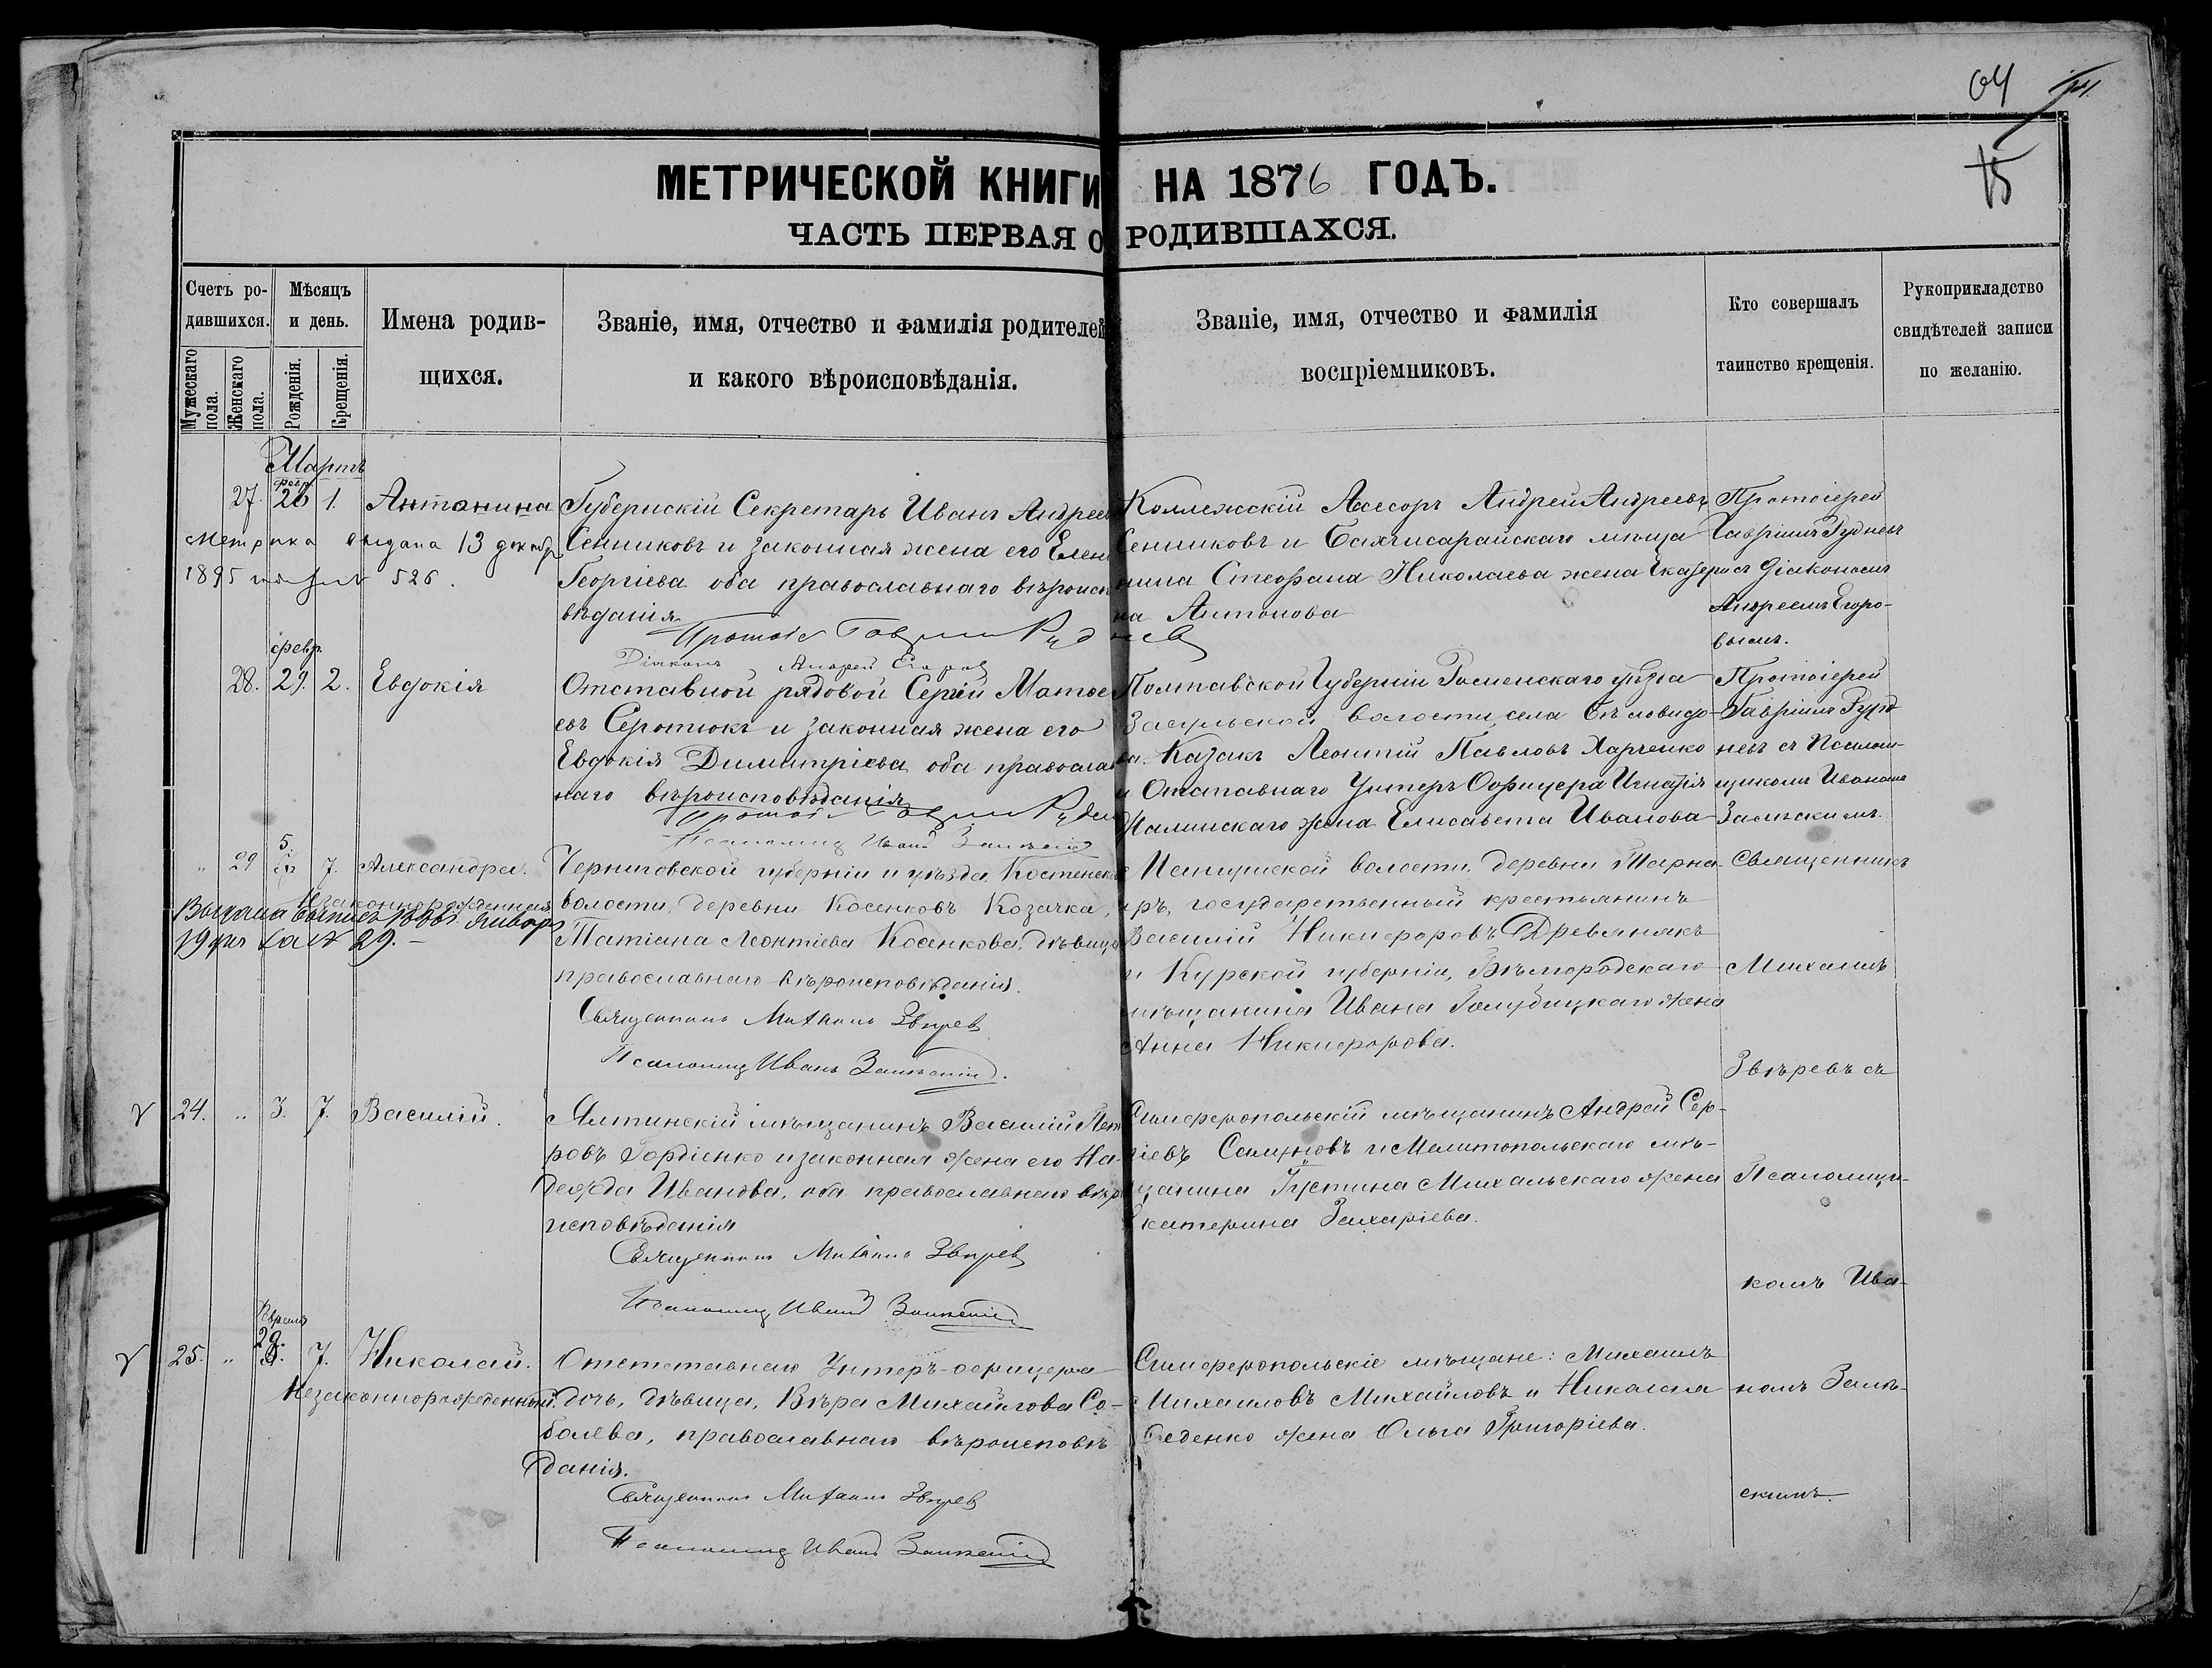 04
15
МЕТРИЧЕСКОЙ КНИГИ НА 1876 ГОДЪ.
ЧАСТЬ ПЕРВАЯ О РОДИВШАХСЯ.
Счетъ ро-
дившихся.
Мужескаго пола.
Женскаго пола.
Мѣсяцъ
и день.
Рожденія.
Крещенія.
Имена родив-
щихся.
Званіе, имя, отчество и фамилія родителей
и какого вѣроисповѣданія.
Званіе, имя, отчество и фамилія
воспріемниковъ.
Кто совершалъ
таинство крещенія.
Рукоприкладство
свидѣтелей записи
по желанію.
Мартъ
февр.
27. 26 1. Антонина
Метрика выдана 13 декабр
1895 526.
Губернскій Секретарь Иванъ Андреев
Сенниковъ и законная жена его Елен
Георгіева оба православнаго вѣроисп
вѣданія
Діаконъ Андрей Егоров
Коллежскій Асесоръ Андрей Андреевъ
Сенниковъ и Бахчисарайскаго мѣща
нина Стефана Николаева жена Екатери
на Антонова
Протоіерей
Гавріилъ Рудневъ
съ Діакономъ
Андреемъ Егоро-
вымъ.
февр.
28. 29. 2. Евдокія
Отставной рядовой Сергій Матве
евъ Серотюкъ и законная жена его
Евдокія Димитріева оба православ
наго вѣроисповѣданія
Полтавской Губерніи Роменскаго уѣзда
Засульской волости, села Бѣловодо-
ва. Казакъ Леонтій Павловъ Харченко
и Отставнаго Унтеръ Офицера Игнатія
жена Елисавета Иванова
Протоіерей
Гавріилъ Руд
невъ съ Псалом-
щикомъ Иваномъ
Замѣскимъ.
" 29 5. 7. Александра.
Незаконнорожденная
Выдана 1896 г. Январ
19 дня за № 29. –
Черниговской губерніи и уѣзда, Костенск
волости, деревни Косенковъ Козачка,
Татіана Леонтіева Косенкова, дѣвица
православнаго вѣроисповѣданія.
Священникъ Михаилъ Звѣрев
Псаломщ Иванъ
волости, деревни
ръ, государственный крестьянинъ
Василій Никифоровъ Древлнякъ
и Курской губерніи, Бѣлгородскаго
мѣщанина Ивана Голубицкаго жена
Анна Никифорова.
Священникъ
Михаилъ
Звѣревъ съ
24. " 3. 7. Василій.
Ялтинскій мѣщанинъ Василій Пет
ровъ Гордіенко и законная жена его На-
дежда Иванова, оба православнаго вѣр
исповѣданія
Священникъ Михаилъ Звѣрев
Симферопольскій мѣщанинъ Андрей Сер-
гіевъ и Мелитопольскаго мѣ-
щанина Густина Михальскаго жена
Екатерина Захаріева.
Псаломщи-
комъ Ива-
25. " 29. 7. Николай.
Незаконнорожденный.
Отстставнаго Унтеръ-офицера
дочь, дѣвица, Вѣра Михайлова Со-
болева, православнаго вѣроисповѣ
данія.
Священникъ Михаилъ Звѣрев
Симферопольскіе мѣщане: Михаилъ
Михаиловъ Михайловъ и Николая
Беденко жена Ольга Григоріева.
номъ Замѣ-
скимъ.